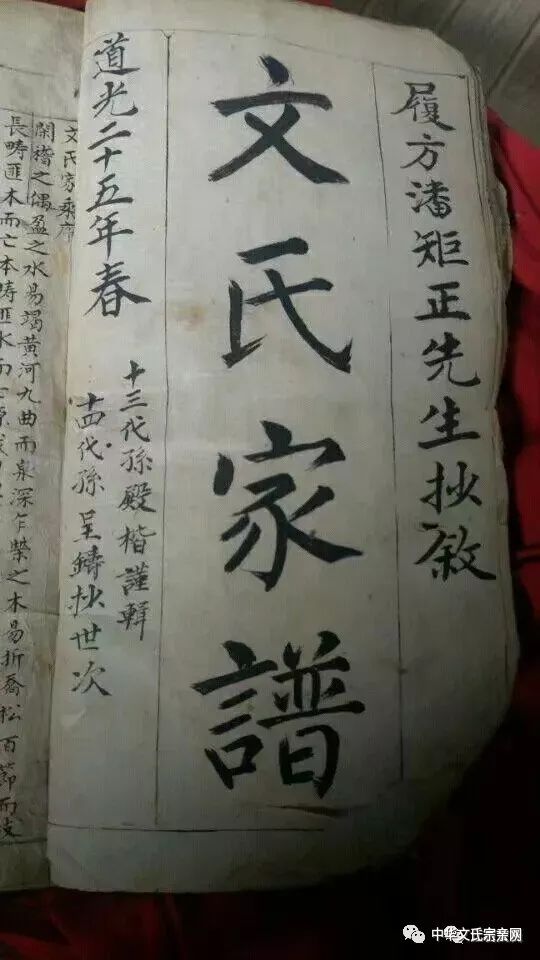 履方潘矩正先生抄敘
文氏家譜
道光二十五年春
十三代孫殿楷謹輯
十四代孫呈鑄抄世次
文氏家乘序
之偶盈之水易竭黃河九曲而泉深乍榮之木易折喬松百節而
長疇匪木而亡本疇匪水而
中华文氏宗亲网